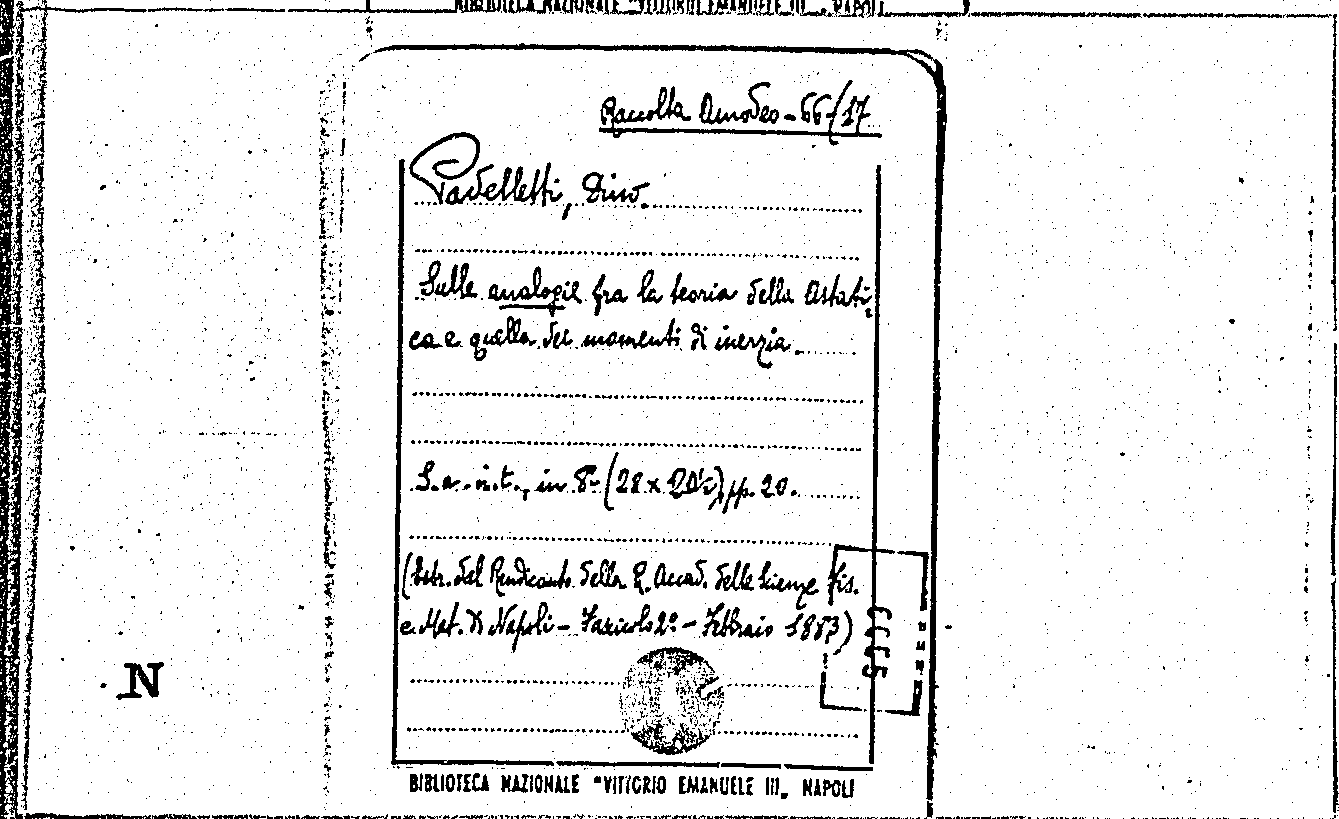 BIBLIOTECA NAZIONALE "VITTORIO EMANUELE III„ NAPOLI
Raccolta Amodeo - 66/17
Padelletti, Dino.
Sulle analogie fra la teoria della Astati,
ca e quella dei momenti di inerzia.
S. a. n. t., in 8º (28 x 20½) pp. 20.
(Estr. dal Rendiconto della R. Accad. delle Scienze fis.
e Mat. di Napoli - Fascicolo 2º - Febbraio 1883)
N
BIBLIOTECA NAZIONALE "VITTORIO EMANUELE III„ NAPOLI